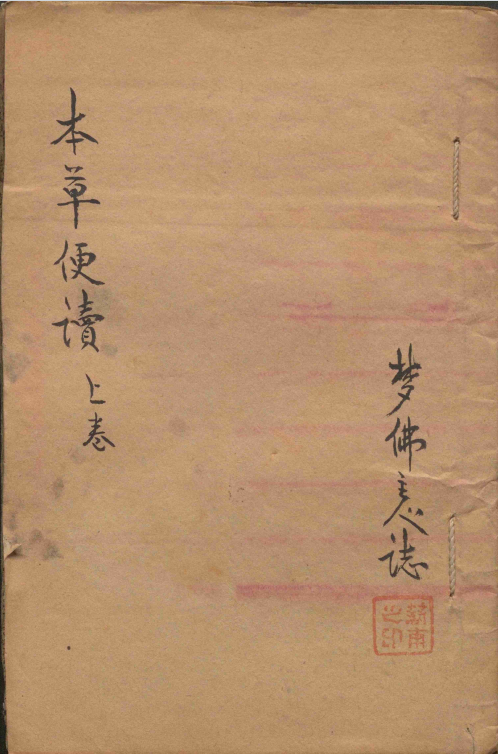 本草便讀 上卷
梦佛誌
甫之印